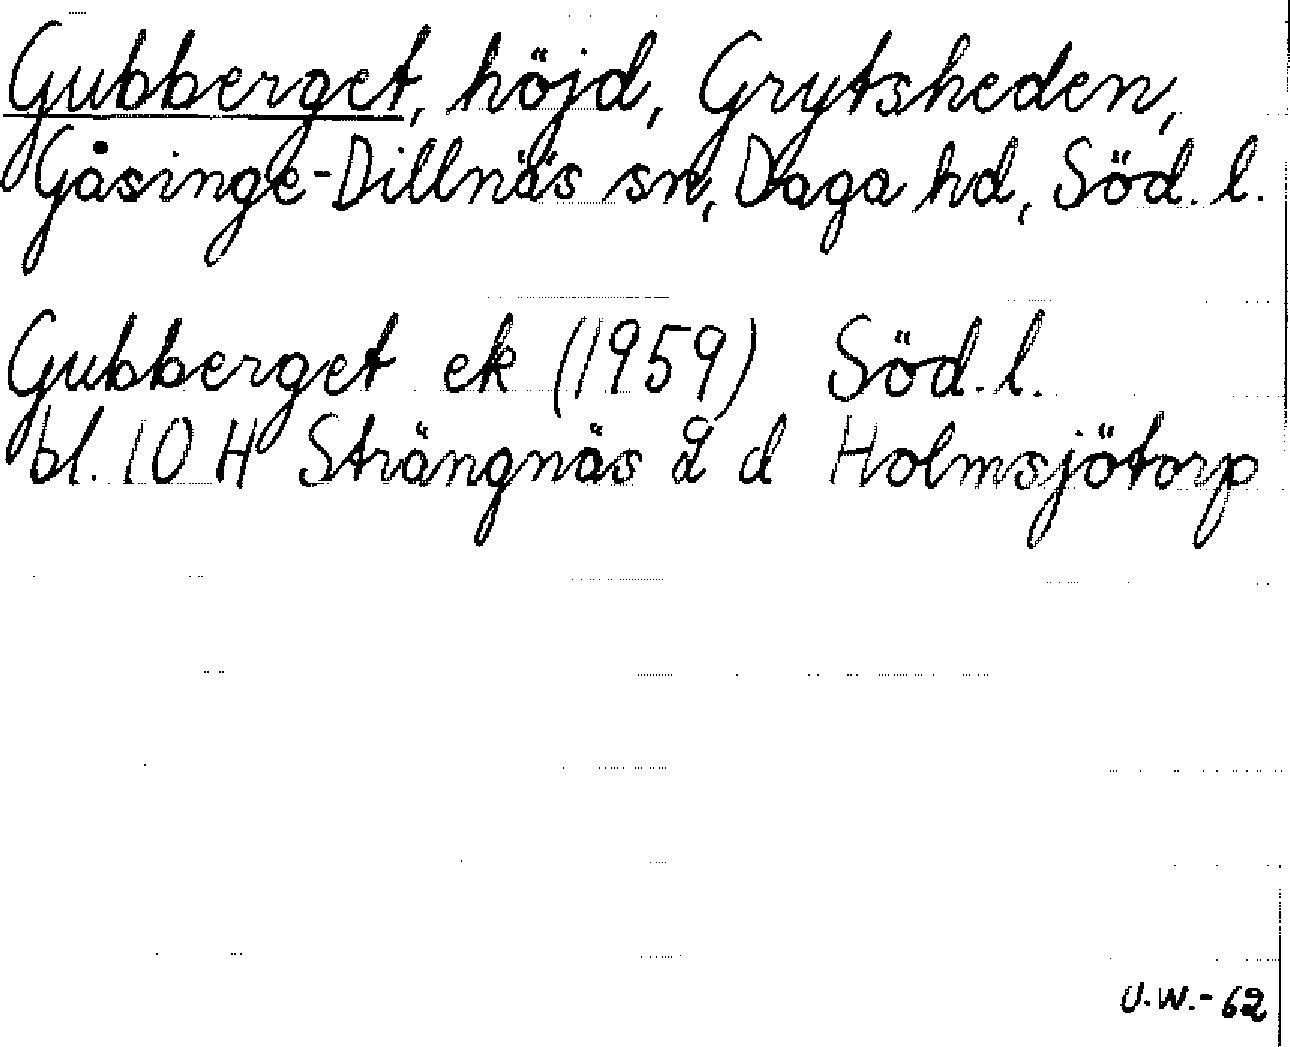 Gubberget, höjd, Grytsheden,
Gåsinge-Dillnäs sn, Daga hd, Söd. l.
Gubberget ek (1959) Söd. l.
bl. 10 H Strängnäs 2 d Holmsjötorp
U.W.-62